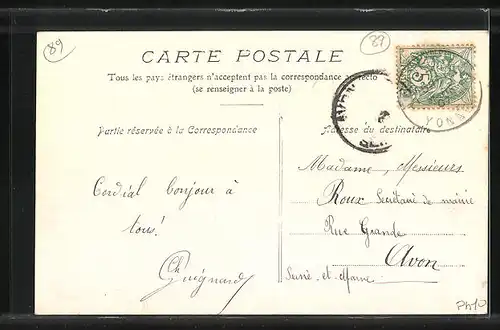 89
89
CARTE POSTALE
Tous les pays étrangers n'acceptent pas la correspondance au recto
(se renseigner à la poste)
Partie réservée à la Correspondance
Adresse du destinataire
AVON
YONN
Cordial bonjour à
tous!
Ch Guignard
Madame, Messieurs
Roux Secrétaire de mairie
Rue Grande
Avon
Seine-et-Marne